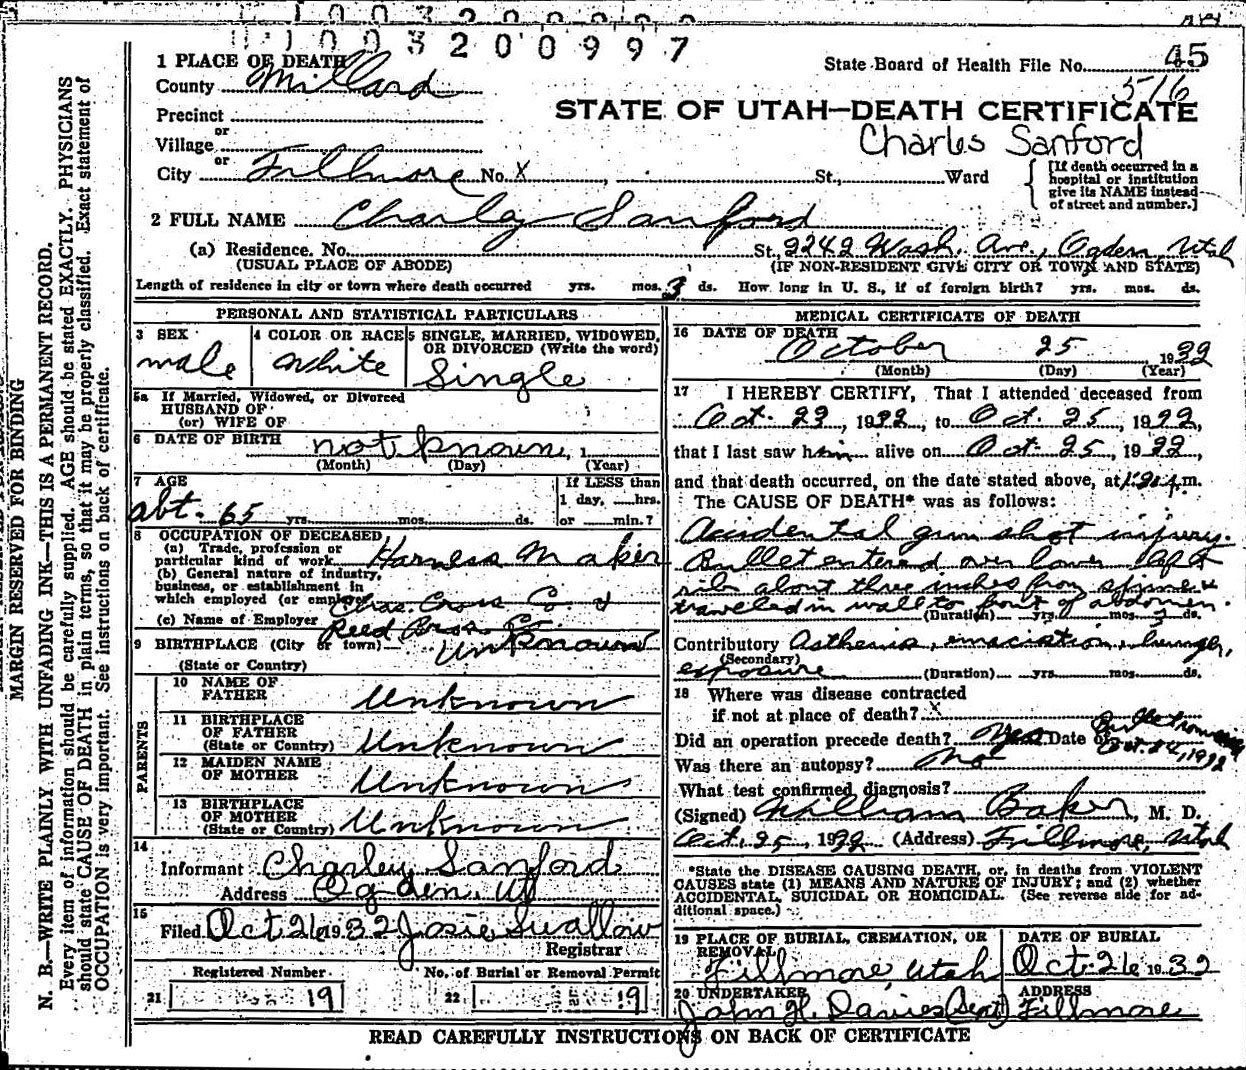 1003200997
1 PLACE OF DEATH
County Millard
State Board of Health File No. 45
516
STATE OF UTAH—DEATH CERTIFICATE
Precinct
or
Village
or
City Fillmore No. X , St., Ward
Charles Sanford
[If death occurred in a
hospital or institution
give its NAME instead
of street and number.]
2 FULL NAME Charley Sanford
(a) Residence, No. St., 2242 Wash. Ave., Ogden, Utah
(USUAL PLACE OF ABODE) (IF NON-RESIDENT GIVE CITY OR TOWN AND STATE)
Length of residence in city or town where death occurred yrs. mos. 3 ds. How long in U. S., if of foreign birth? yrs. mos. ds.
PERSONAL AND STATISTICAL PARTICULARS
3 SEX
male
4 COLOR OR RACE
White
5 SINGLE, MARRIED, WIDOWED,
OR DIVORCED (Write the word)
Single
5a If Married, Widowed, or Divorced
HUSBAND OF
(or) WIFE OF
6 DATE OF BIRTH not known, 1
(Month) (Day) (Year)
7 AGE
abt. 65 yrs. mos. ds.
If LESS than
1 day, hrs.
or min.?
8 OCCUPATION OF DECEASED
(a) Trade, profession or
particular kind of work Harness Maker
(b) General nature of industry,
business, or establishment in
which employed (or employer)
(c) Name of Employer
9 BIRTHPLACE (City or town) Unknown
(State or Country)
PARENTS
10 NAME OF
FATHER Unknown
11 BIRTHPLACE
OF FATHER
(State or Country) Unknown
12 MAIDEN NAME
OF MOTHER Unknown
13 BIRTHPLACE
OF MOTHER
(State or Country) Unknown
14
Informant Charley Sanford
Address Ogden, Ut
15
Filed Oct 26 1932 Josie Swallow
Registrar
Registered Number
21 19
No. of Burial or Removal Permit
22 19
MEDICAL CERTIFICATE OF DEATH
16 DATE OF DEATH
October 25 1932
(Month) (Day) (Year)
17 I HEREBY CERTIFY, That I attended deceased from
Oct. 23, 1932, to Oct. 25, 1932,
that I last saw him alive on Oct. 25, 1932,
and that death occurred, on the date stated above, at p.m.
The CAUSE OF DEATH* was as follows:
Accidental gun shot injury.
Bullet entered over lower left
rib about three inches from spine &
traveled in wall to front of abdomen.
(Duration) yrs. mos. ds.
Contributory Asthenia, emaciation, hunger,
(Secondary)
exposure (Duration) yrs. mos. ds.
18 Where was disease contracted
if not at place of death? X
Did an operation precede death? Yes Date of Oct. 24, 1932
Was there an autopsy? no
What test confirmed diagnosis?
(Signed) William Baker, M. D.
Oct. 25, 1932 (Address) Fillmore, Utah
*State the DISEASE CAUSING DEATH, or, in deaths from VIOLENT
CAUSES state (1) MEANS AND NATURE OF INJURY; and (2) whether
ACCIDENTAL, SUICIDAL OR HOMICIDAL. (See reverse side for ad-
ditional space.)
19 PLACE OF BURIAL, CREMATION, OR
REMOVAL
Fillmore, Utah
DATE OF BURIAL
Oct. 26 1932
20 UNDERTAKER
John H. Davies (Sext)
ADDRESS
Fillmore
READ CAREFULLY INSTRUCTIONS ON BACK OF CERTIFICATE
MARGIN RESERVED FOR BINDING
N. B.—WRITE PLAINLY WITH UNFADING INK—THIS IS A PERMANENT RECORD.
Every item of information should be carefully supplied. AGE should be stated EXACTLY. PHYSICIANS
should state CAUSE OF DEATH in plain terms, so that it may be properly classified. Exact statement of
OCCUPATION is very important. See instructions on back of certificate.